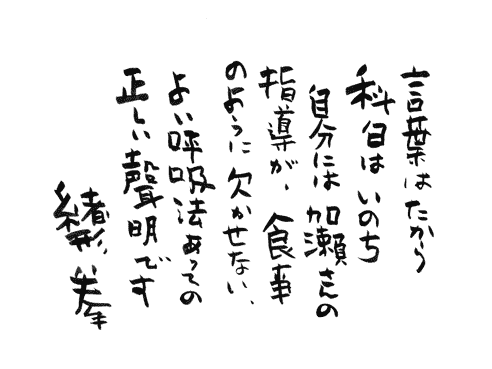 言葉はたから
科白はいのち
自分には加瀬さんの
指導が、食事
のように欠かせない、
よい呼吸法あっての
正しい聲明です
緒形拳